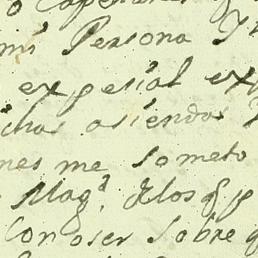 mi Persona
expesial ex
chas asiendas
nes me someto
Mag.d delos q p
Conoser sobre q